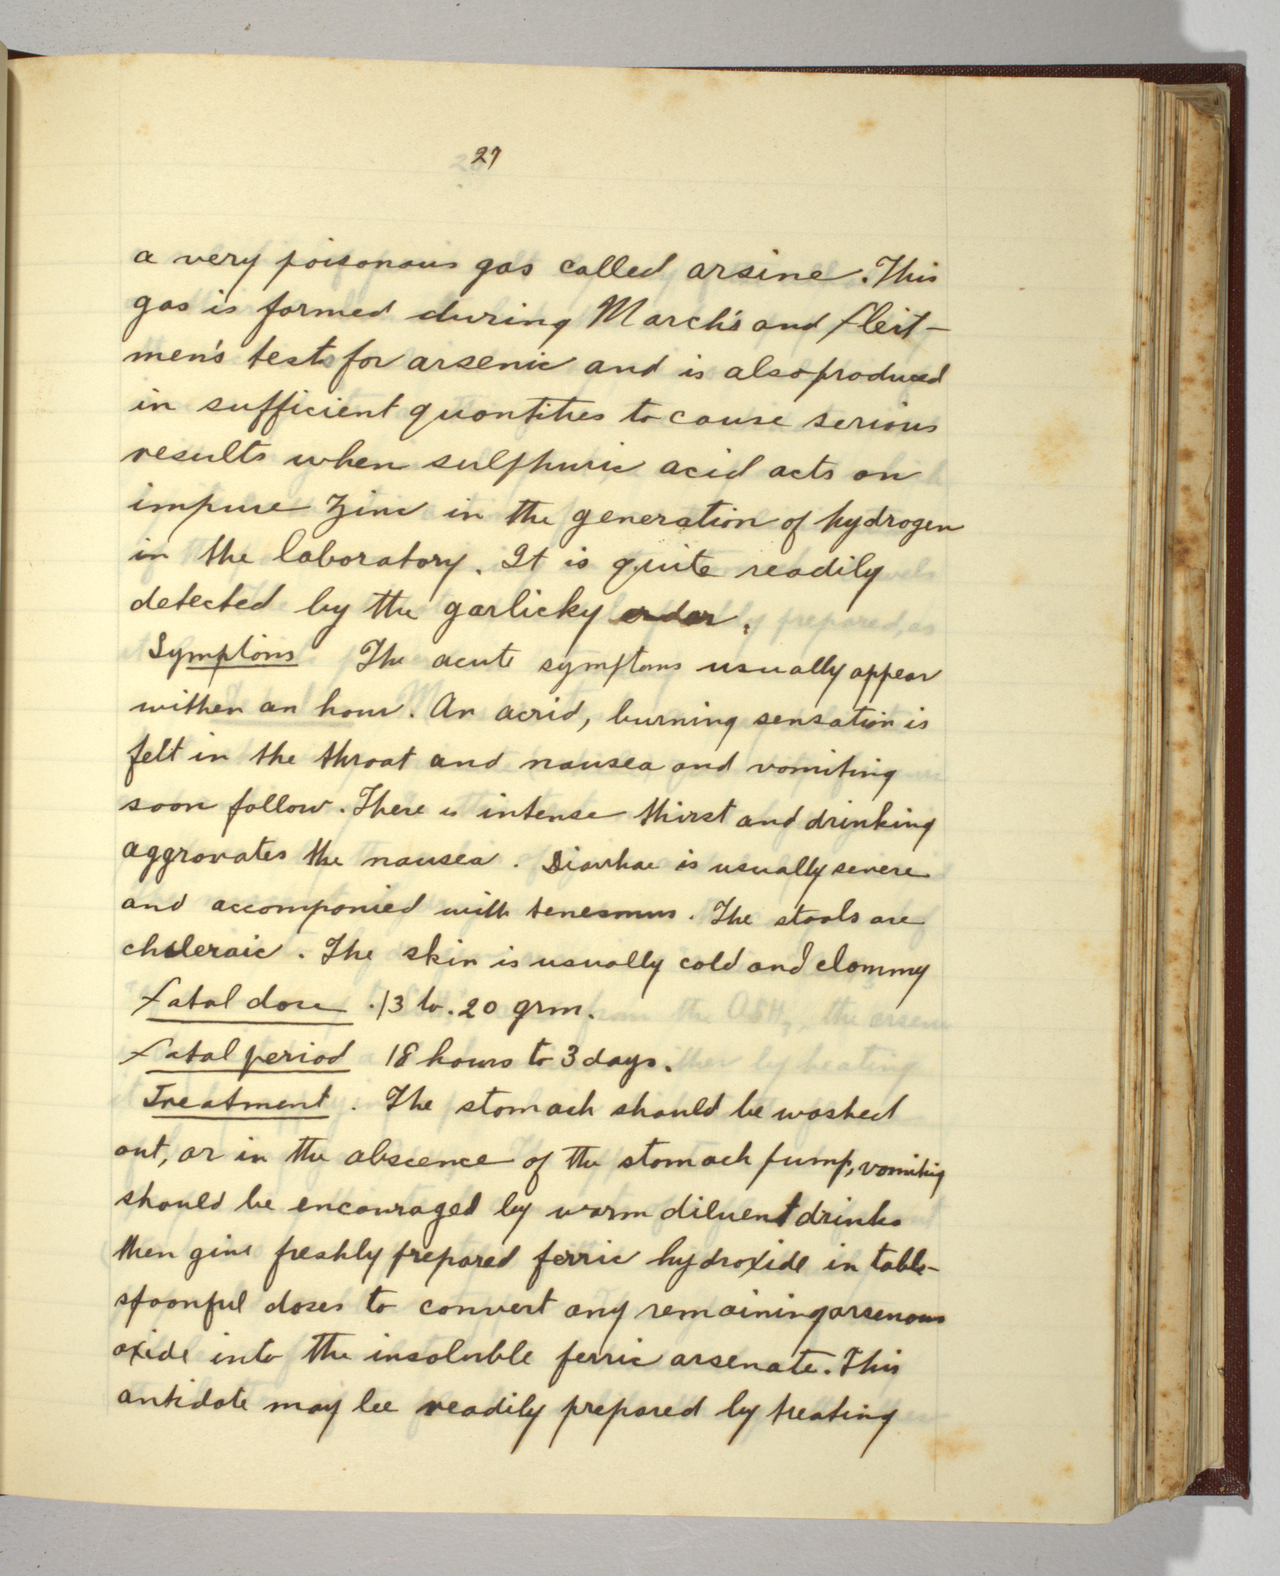 27
a very poisonous gas called arsine. This
gas is formed during March's and fleit-
men's tests for arsenic and is also produced
in sufficient quantities to cause serious
results when sulphuric acid acts on
impure zinc in the generation of hydrogen
in the laboratory. It is quite readily
detected by the garlicky order.
Symptoms The acute symptoms usually appear
withen an hour. An acrid, burning sensation is
felt in the throat and nausea and vomiting
soon follow. There is intense thirst and drinking
aggrovates the nausea. Diarrhae is usually severe
and accomponied with tenesmus. The stools are
choleraic. The skin is usually cold and clammy
Fatal dose .13 to .20 grm.
Fatal period 18 hours to 3 days.
Treatment. The stomach should be washed
out, or in the abscence of the stomach pump, vomiting
should be encouraged by warm diluent drinks
then give freshly prepared ferric hydroxide in table-
spoonful doses to convert any remaining arsenous
oxide into the insoluble ferric arsenate. This
antidote may be readily prepared by treating